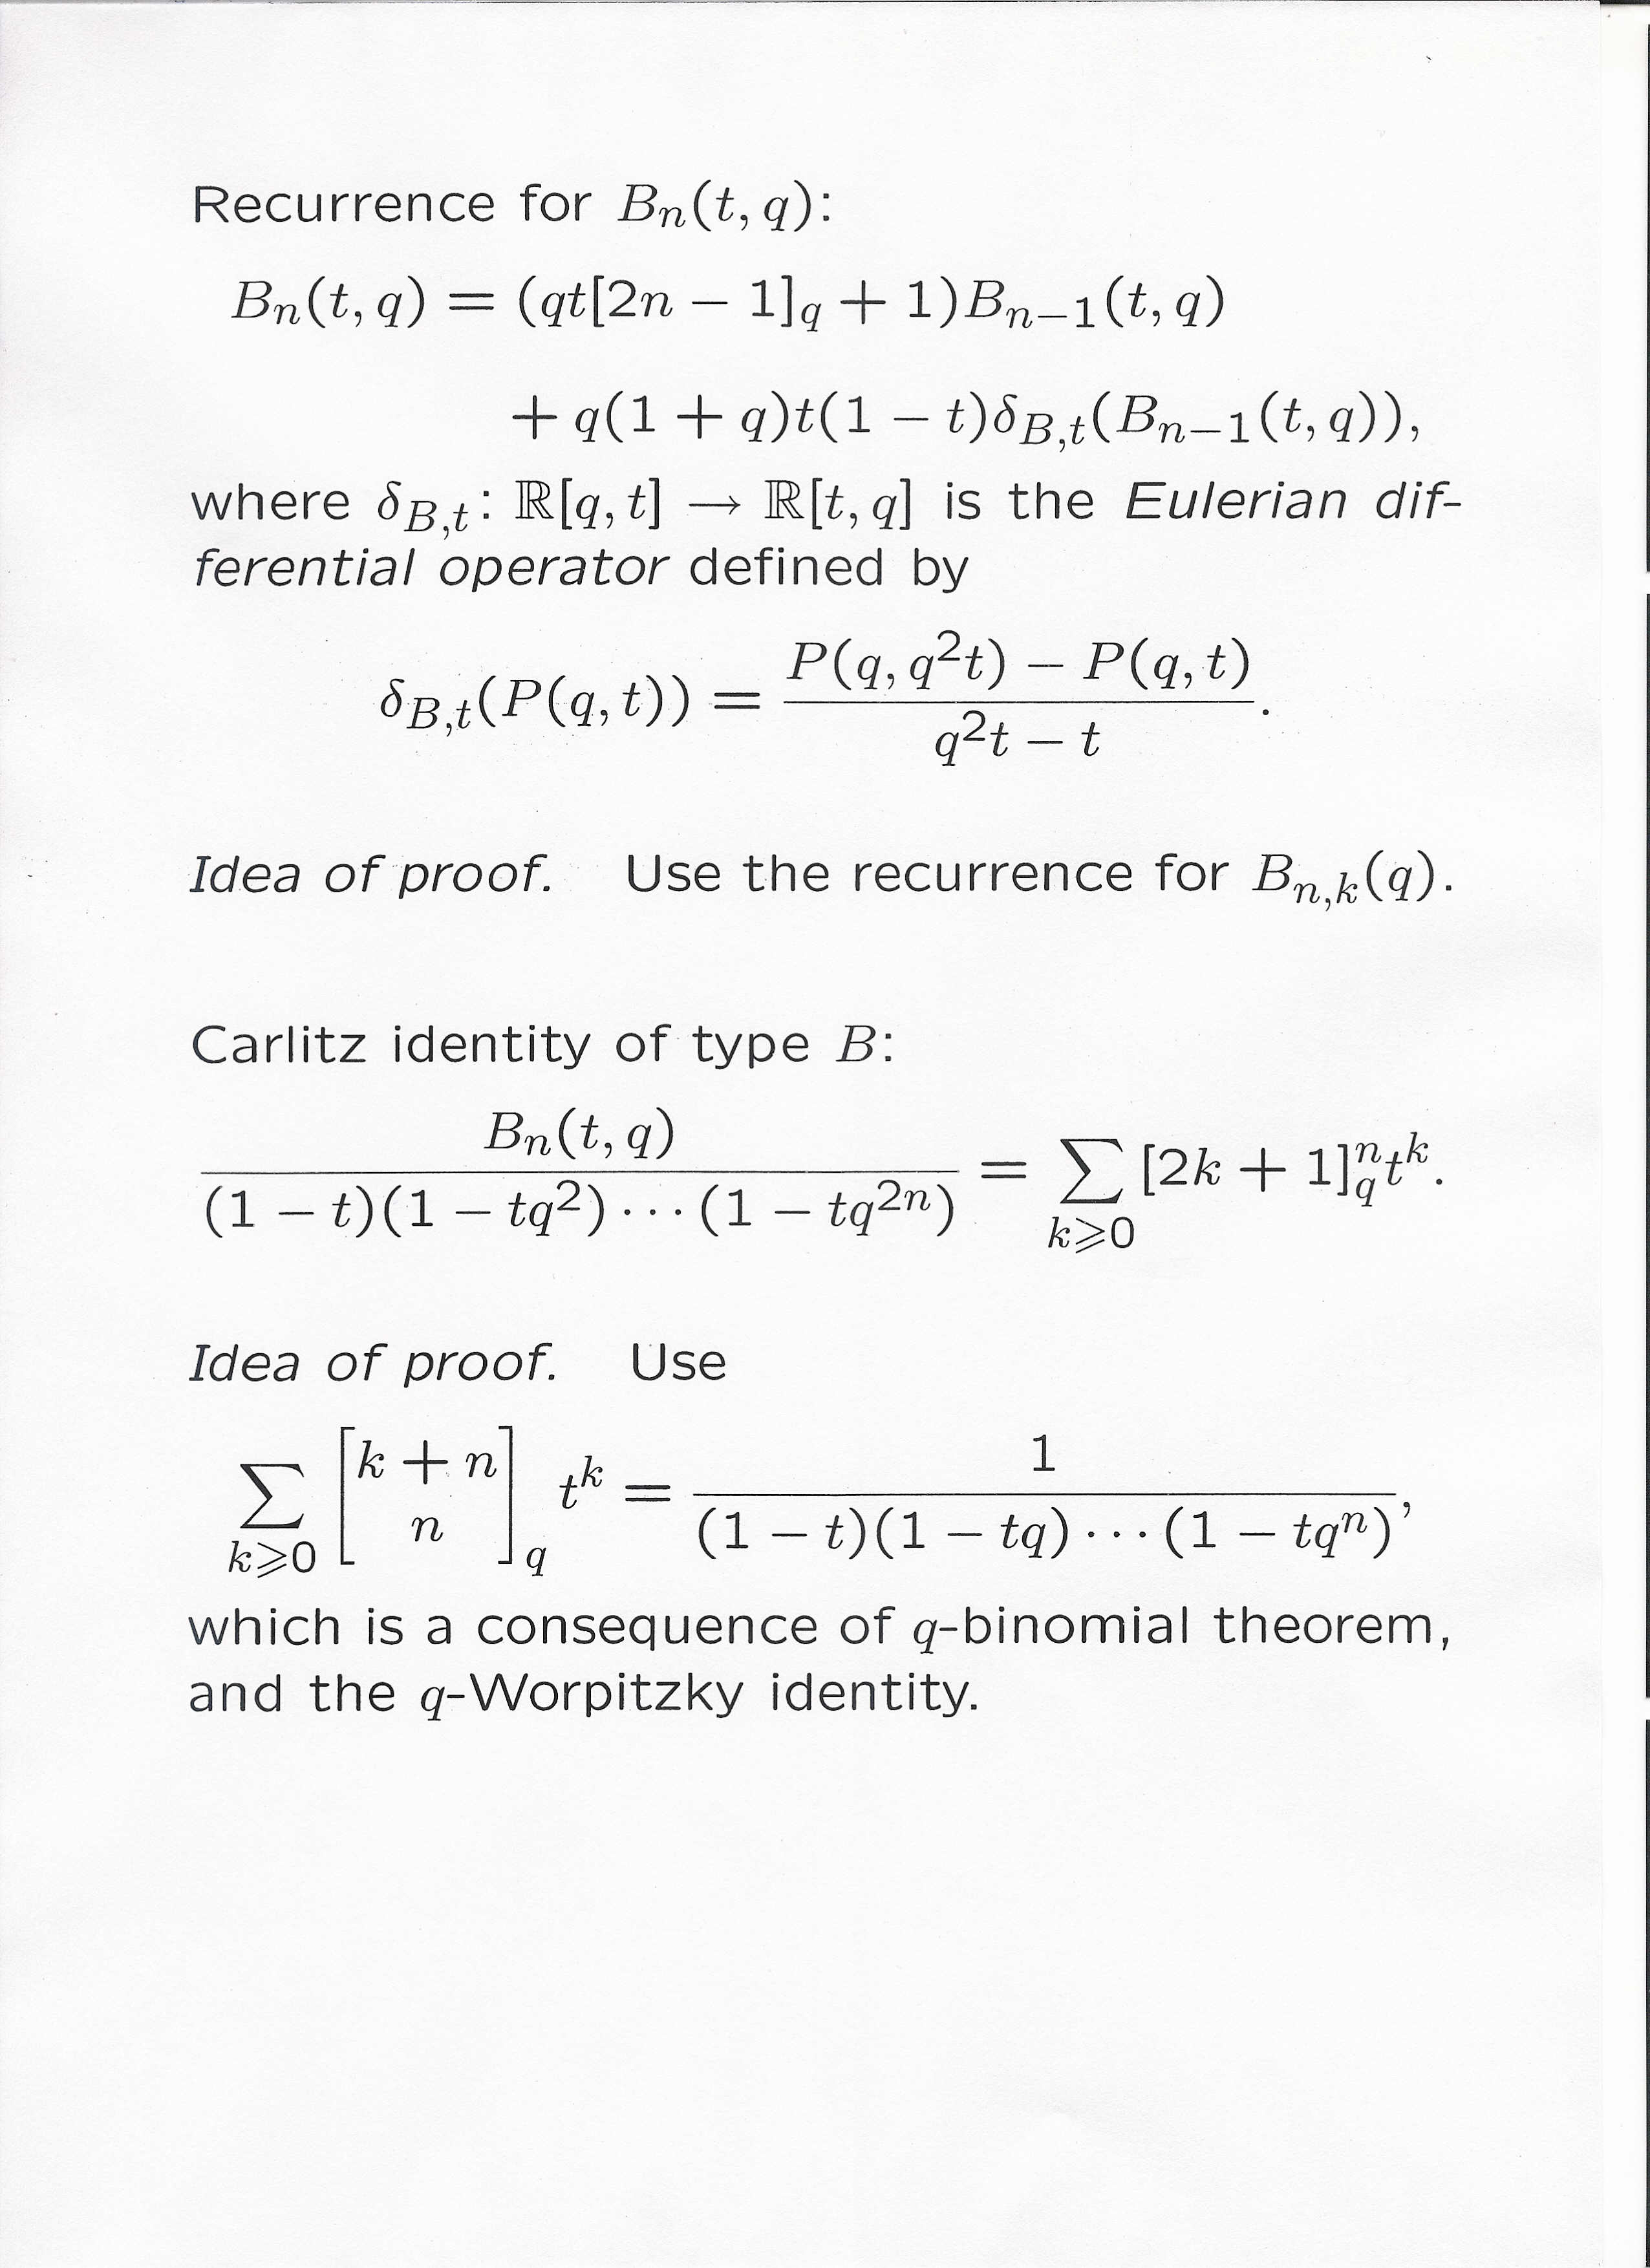 Recurrence for $B_n(t, q)$:
$B_n(t, q) = (qt[2n - 1]_q + 1)B_{n-1}(t, q)$
$+ q(1 + q)t(1 - t)\delta_{B,t}(B_{n-1}(t, q)),$
where $\delta_{B,t} \colon \mathbb{R}[q, t] \to \mathbb{R}[t, q]$ is the Eulerian dif-
ferential operator defined by
$\delta_{B,t}(P(q, t)) = \frac{P(q, q^2t) - P(q, t)}{q^2t - t}.$
Idea of proof. Use the recurrence for $B_{n,k}(q)$.
Carlitz identity of type $B$:
$\frac{B_n(t, q)}{(1 - t)(1 - tq^2) \cdots (1 - tq^{2n})} = \sum_{k \geqslant 0} [2k + 1]_q^n t^k.$
Idea of proof. Use
$\sum_{k \geqslant 0} \begin{bmatrix} k + n \\ n \end{bmatrix}_q t^k = \frac{1}{(1 - t)(1 - tq) \cdots (1 - tq^n)},$
which is a consequence of $q$-binomial theorem,
and the $q$-Worpitzky identity.